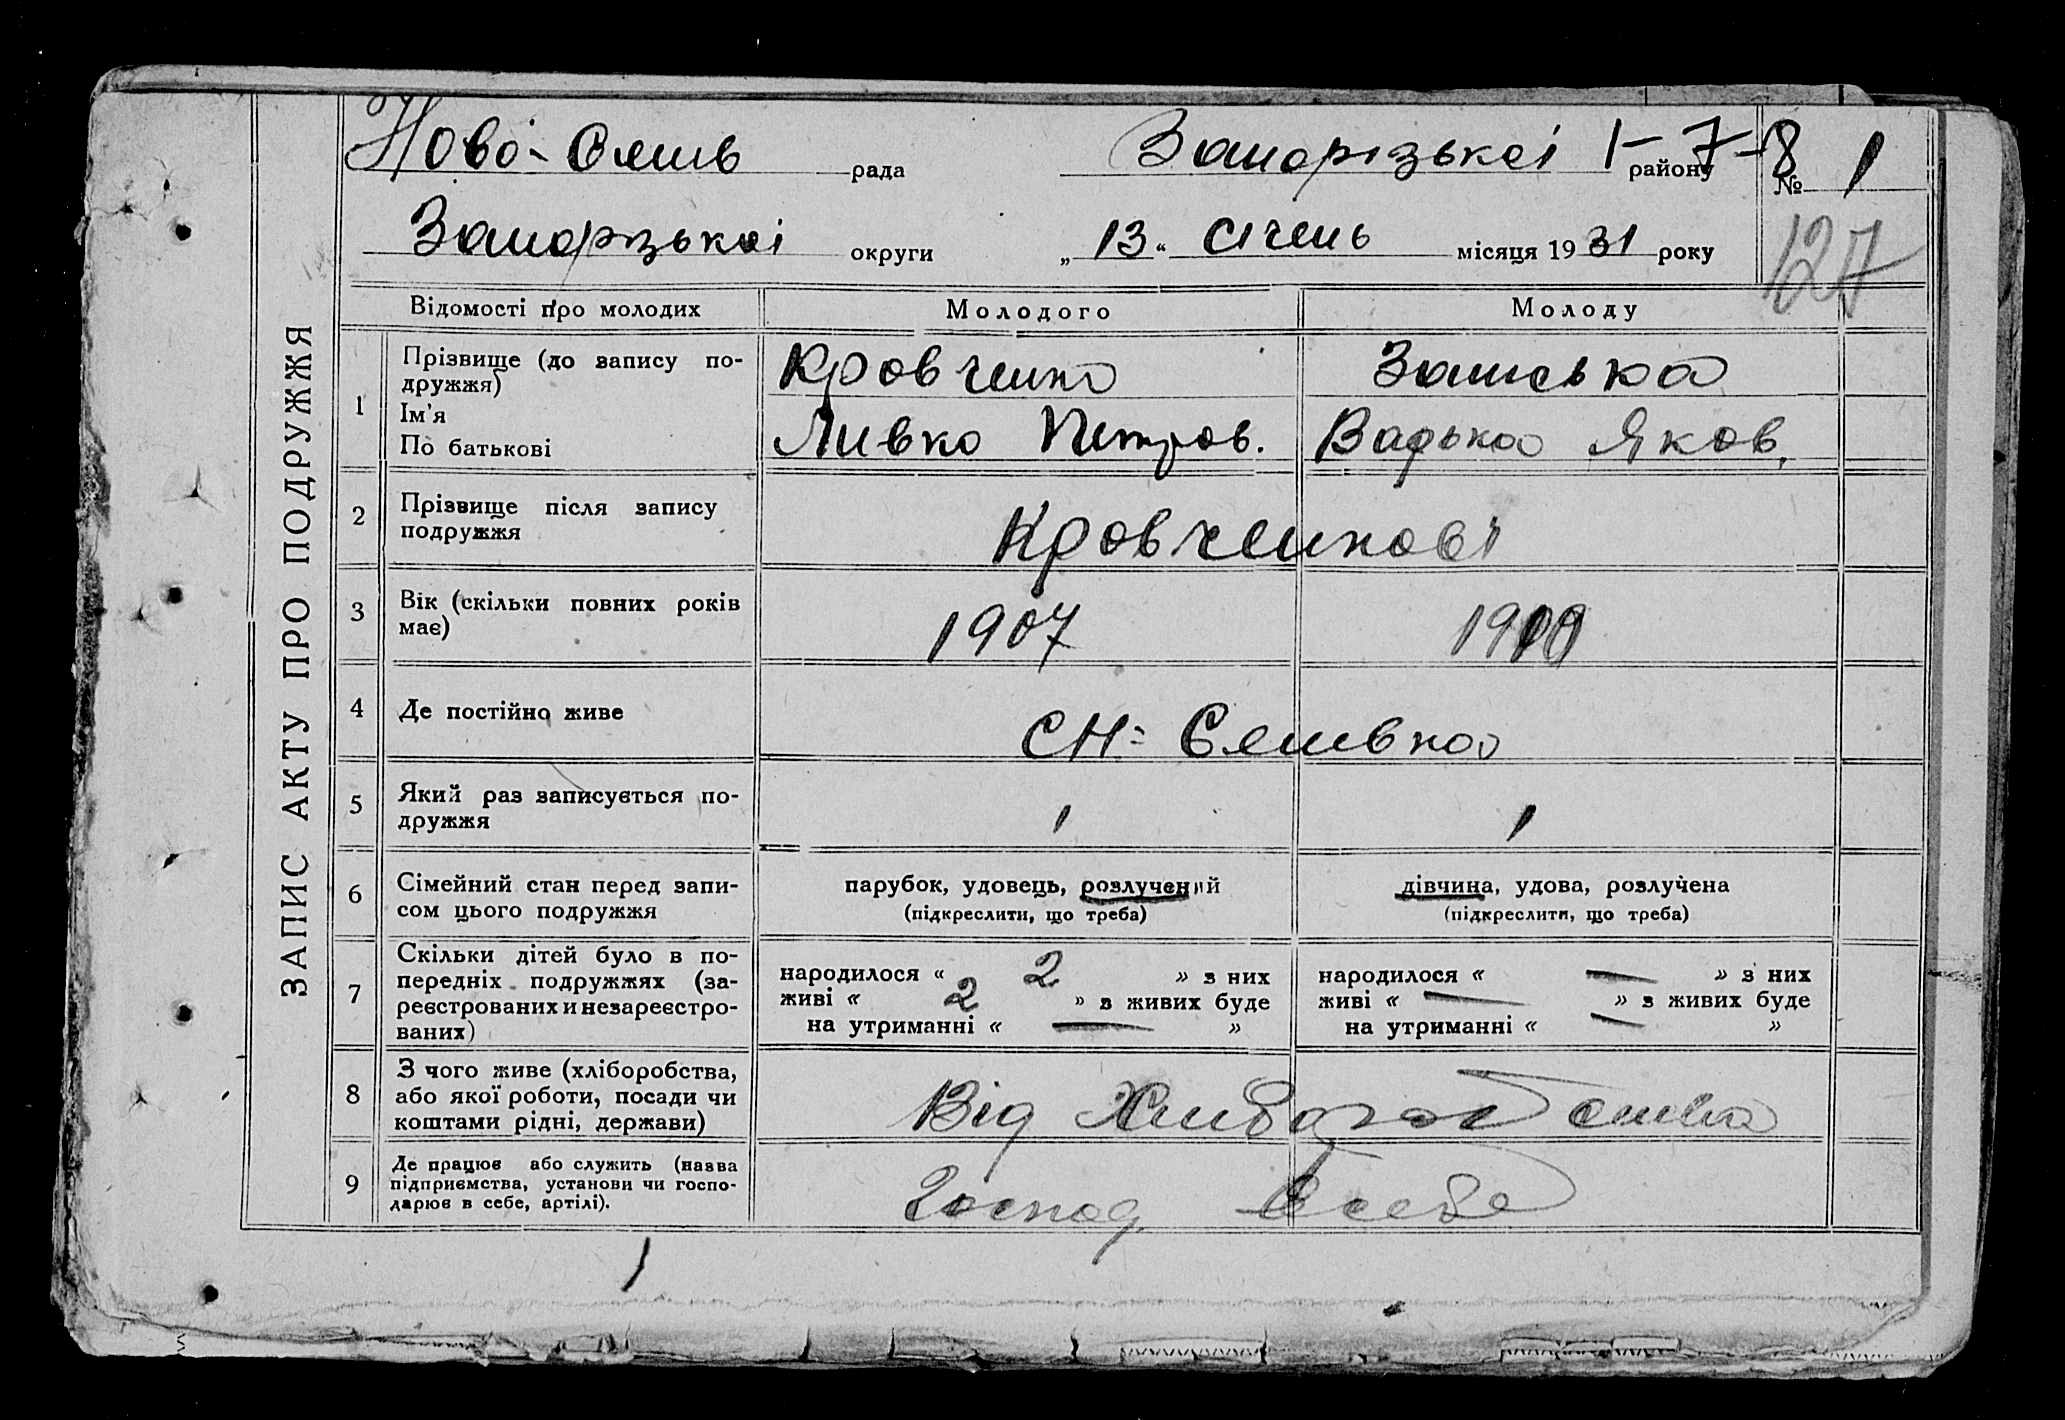 Ново- рада Запорізької району 1-7-8 № 1
Запорізької округи „13“ січень місяця 1931 року
127
ЗАПИС АКТУ ПРО ПОДРУЖЖЯ
Відомості про молодих Молодого Молоду
1 Прізвище (до запису по-
дружжя)
Ім'я
По батькові
Кровченко
Ливко Петров.
Яков.
2 Прізвище після запису
подружжя
Кровченкові
3 Вік (скільки повних років
має)
1907
4 Де постійно живе
5 Який раз записується по-
дружжя
1 1
6 Сімейний стан перед запи-
сом цього подружжя
парубок, удовець, розлучений
(підкреслити, що треба)
дівчина, удова, розлучена
(підкреслити, що треба)
7 Скільки дітей було в по-
передніх подружжях (за-
реєстрованих и незареєстро-
ваних)
народилося « 2 » з них
живі « 2 » з живих буде
на утриманні « — »
народилося « — » з них
живі « — » з живих буде
на утриманні « — »
8 З чого живе (хліборобства,
або якої роботи, посади чи
коштами рідні, держави)
Від
9 Де працює або служить (назва
підприємства, установи чи госпо-
дарює в себе, артілі).
Господ. в себе
1